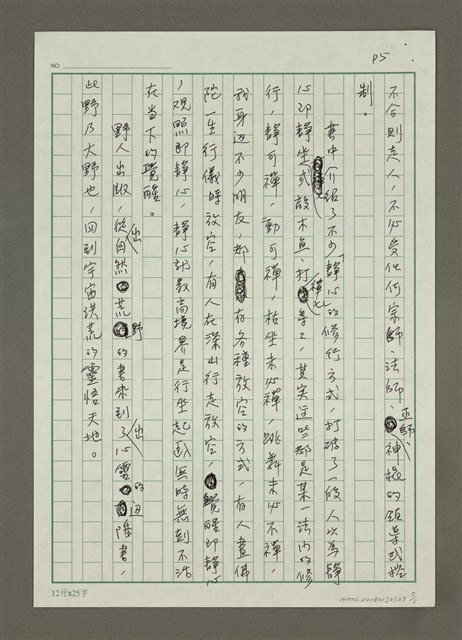 P5
NO
不合則走人，不必受任何宗師、法師、巫師、神棍的領導或控
制。
書中介紹了不少「靜心」的修行方式，打破了一般人以為靜
心即靜坐或敲木魚、打禪七，其實這些都是某一法門的修
行，靜可禪，動可禪，枯坐未必禪，跳舞未必不禪，
我身边不少朋友，都有各種放空的方式，有人畫佛
陀一生行儀時放空，有人在深山行走放空，覺醒即靜心
，觀照即靜心，靜心的最高境界是行坐起臥無時無刻不活
在當下的覺醒。
野人出版，從自然出荒野的書來到了心靈出的边陲書，
此野乃大野也，回到宇宙洪荒的靈悟天地。
12行x25字